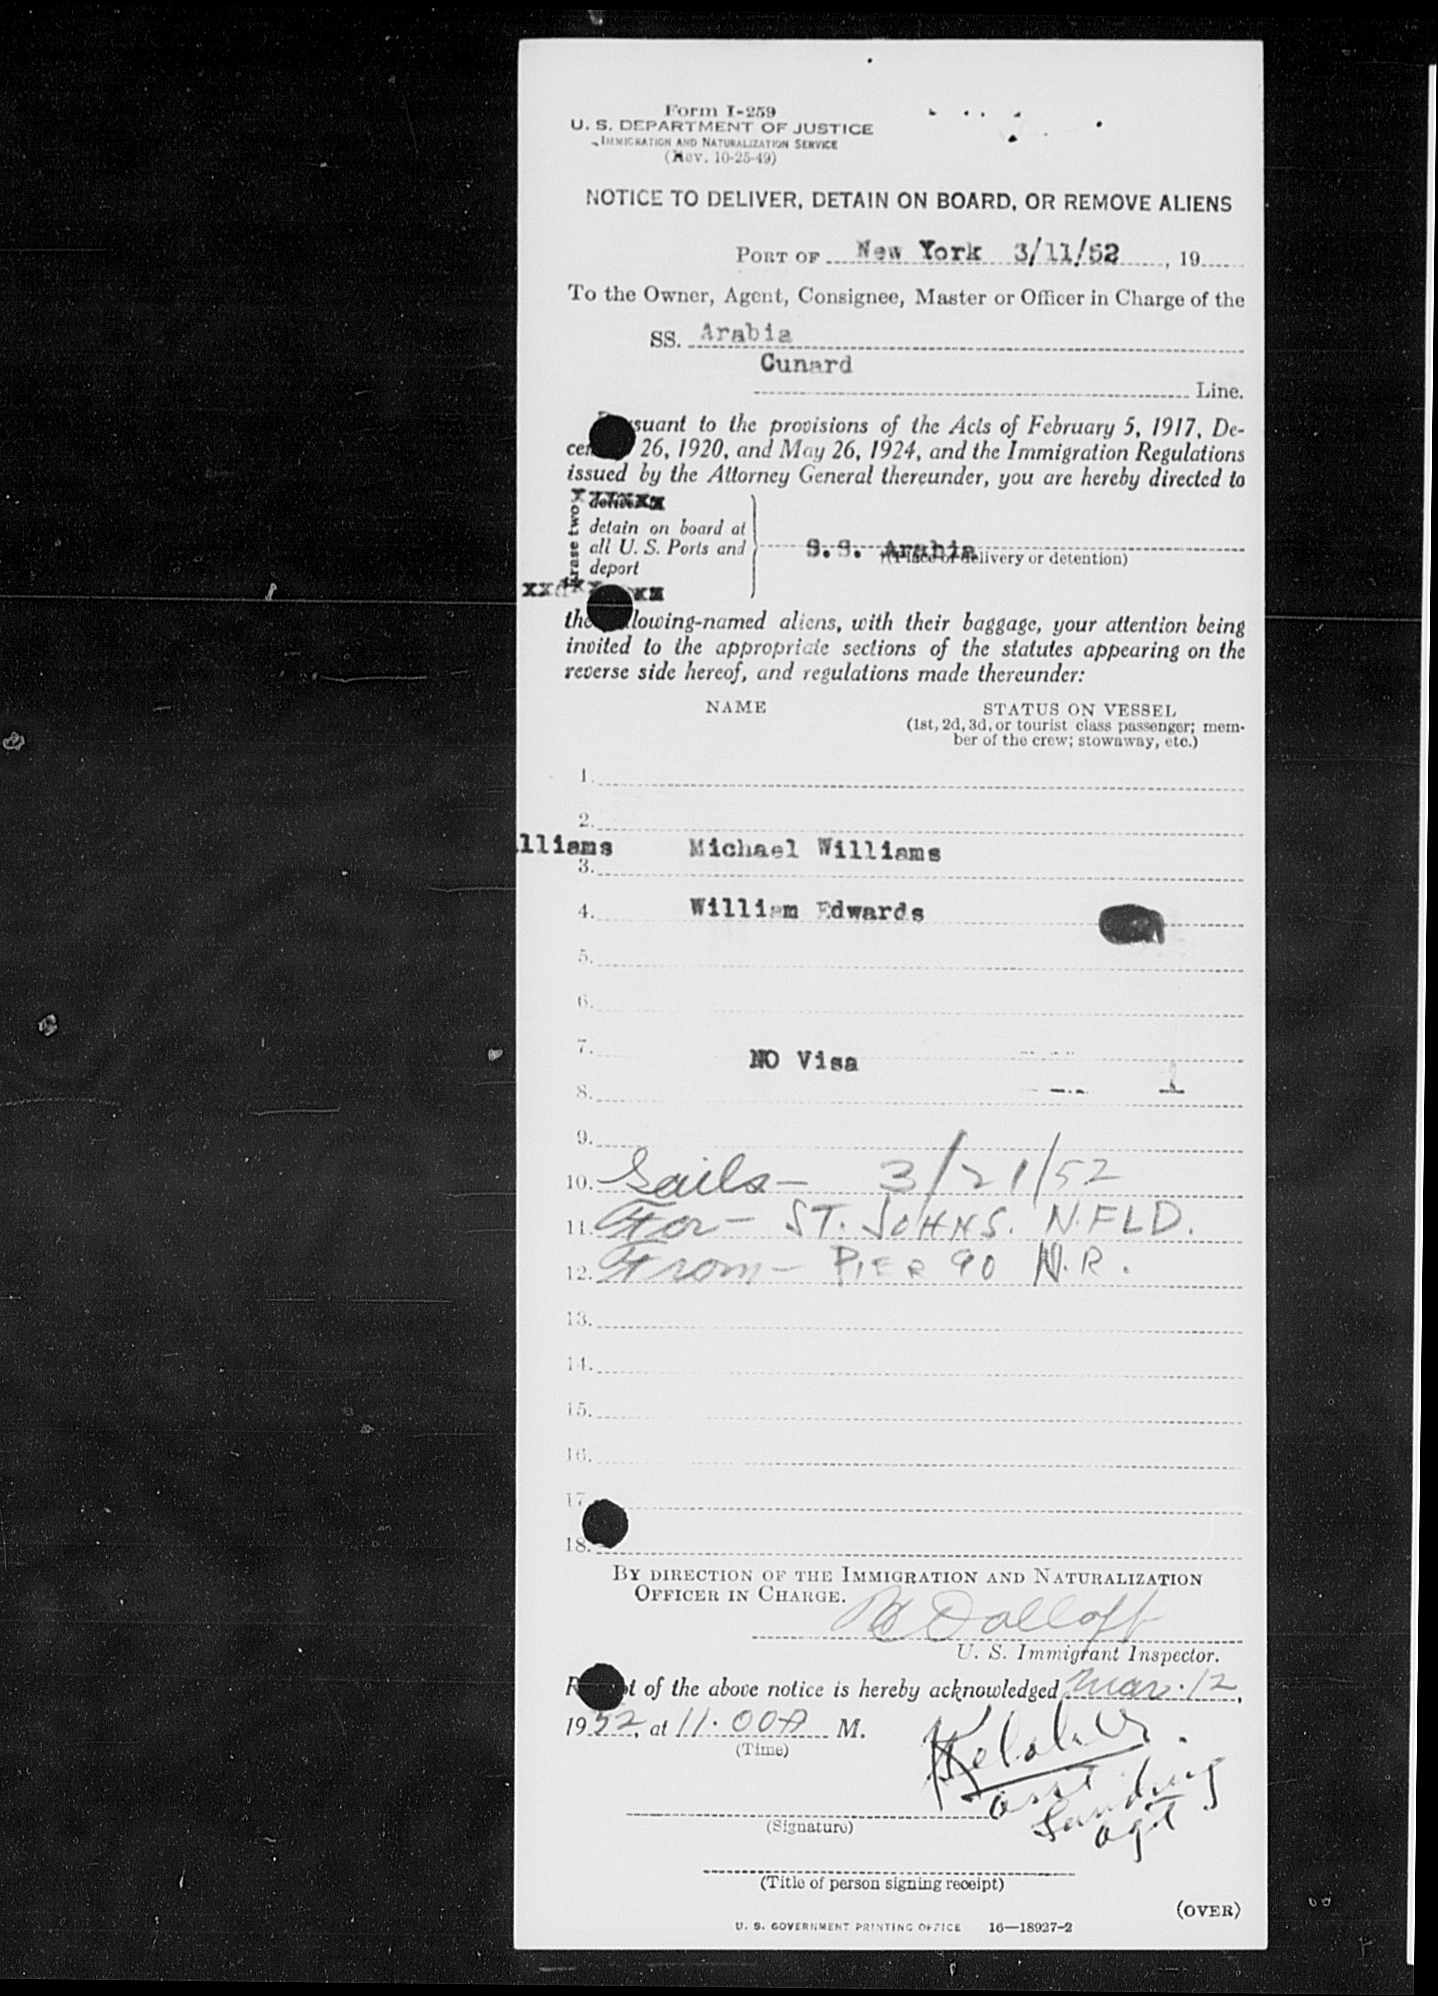 Form I-259
U. S. DEPARTMENT OF JUSTICE
IMMIGRATION AND NATURALIZATION SERVICE
(Rev. 10-25-49)
NOTICE TO DELIVER, DETAIN ON BOARD, OR REMOVE ALIENS
PORT OF New York 3/11/52, 19
To the Owner, Agent, Consignee, Master or Officer in Charge of the
SS. Arabia
Cunard
Line.
suant to the provisions of the Acts of February 5, 1917, De-
cem 26, 1920, and May 26, 1924, and the Immigration Regulations
issued by the Attorney General thereunder, you are hereby directed to
Erase two
detain on board at
all U. S. Ports and
deport
S.S. Arabia
(Place of delivery or detention)
the lowing-named aliens, with their baggage, your attention being
invited to the appropriate sections of the statutes appearing on the
reverse side hereof, and regulations made thereunder:
NAME
STATUS ON VESSEL
(1st, 2d, 3d, or tourist class passenger; mem-
ber of the crew; stowaway, etc.)
1.
2.
lliams Michael Williams
3.
4. William Edwards
5.
6.
7.
NO Visa
8.
9.
10. Sails- 3/21/52
11. For- ST. JOHNS. N.FLD.
12. From- PIER 90 N.R.
13.
14.
15.
16.
17.
18.
BY DIRECTION OF THE IMMIGRATION AND NATURALIZATION
OFFICER IN CHARGE.
U. S. Immigrant Inspector.
R t of the above notice is hereby acknowledged Mar. 12,
1952, at 11:00A M.
(Time)
asst Landing
agt
(Signature)
(Title of person signing receipt)
(OVER)
U. S. GOVERNMENT PRINTING OFFICE 16—18927-2